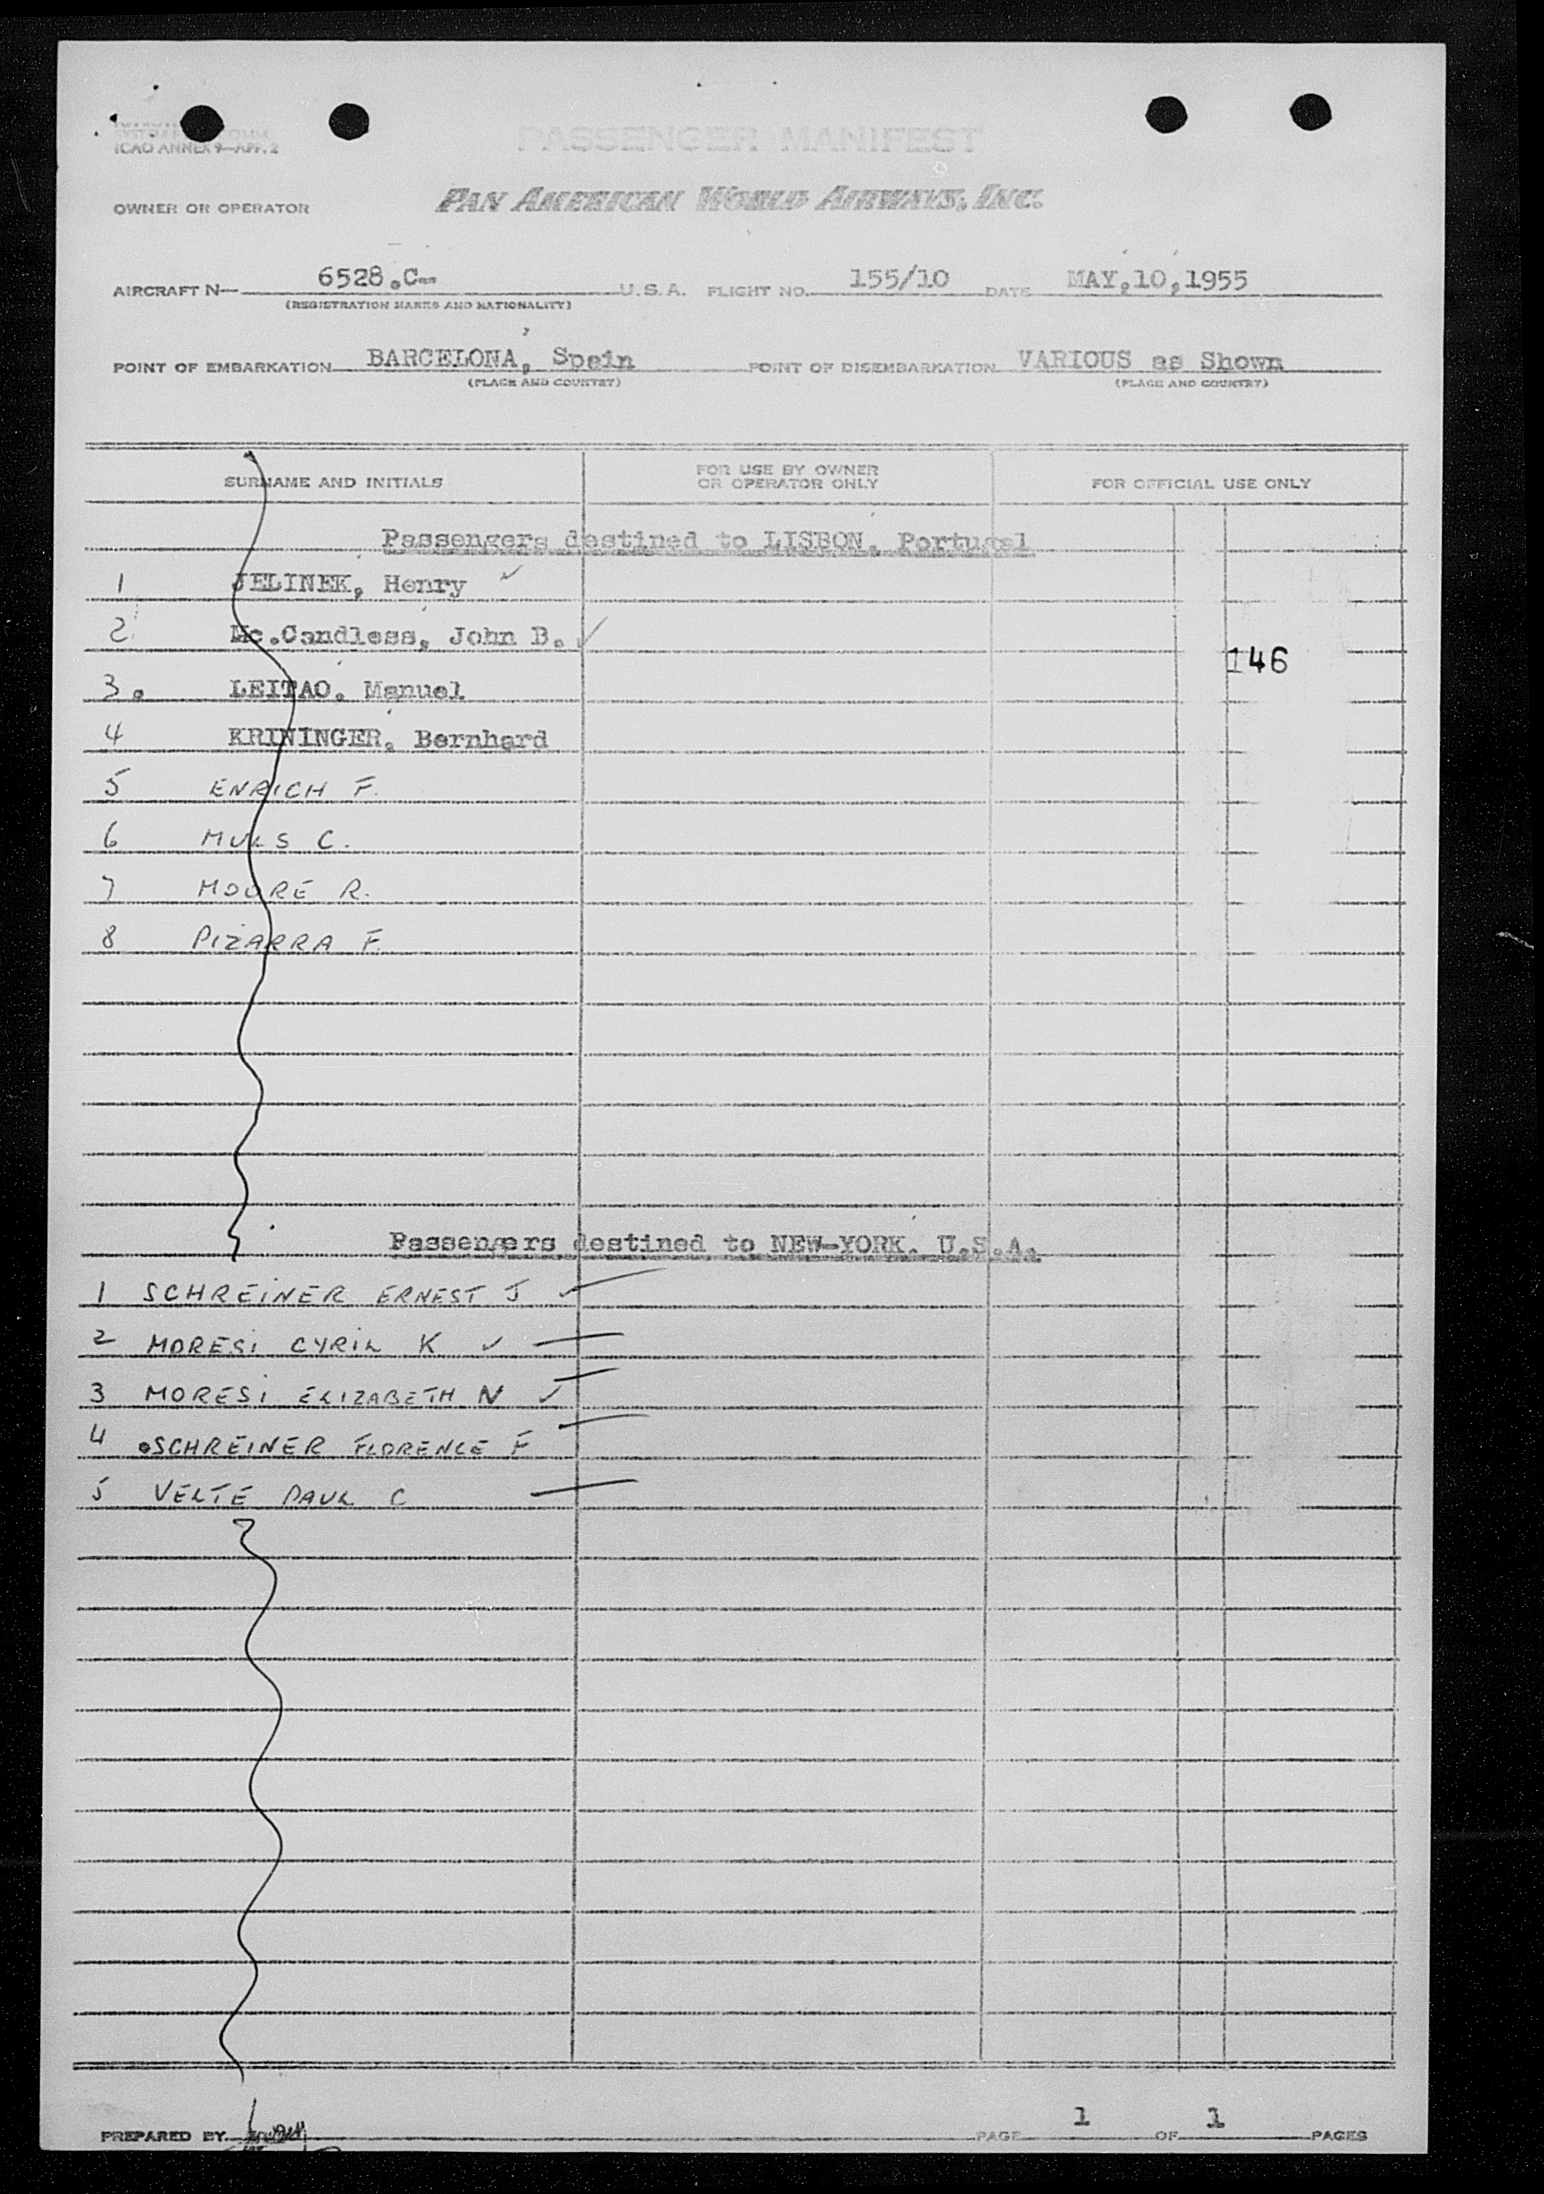 ICAO ANNEX 9—APP. 2
PASSENGER MANIFEST
OWNER OR OPERATOR PAN AMERICAN WORLD AIRWAYS, INC.
AIRCRAFT N— 6528.C-- U.S.A. FLIGHT NO. 155/10 DATE MAY,10,1955
(REGISTRATION MARKS AND NATIONALITY)
POINT OF EMBARKATION BARCELONA, Spain POINT OF DISEMBARKATION VARIOUS as Shown
(PLACE AND COUNTRY) (PLACE AND COUNTRY)
SURNAME AND INITIALS FOR USE BY OWNER OR OPERATOR ONLY FOR OFFICIAL USE ONLY
Passengers destined to LISBON. Portugal
1 JELINEK, Henry ✓
2 Mc.Candless, John B. ✓
146
3. LEITAO. Manuel
4 KRININGER. Bernhard
5 ENRICH F.
6 MULS C.
7 MOORE R.
8 PIZARRA F.
Passengers destined to NEW-YORK. U.S.A.
1 SCHREINER ERNEST J ✓
2 MORESI CYRIL K ✓
3 MORESI ELIZABETH N ✓
4 SCHREINER FLORENCE F
5 VELTE PAUL C
PREPARED BY PAGE 1 OF 1 PAGES